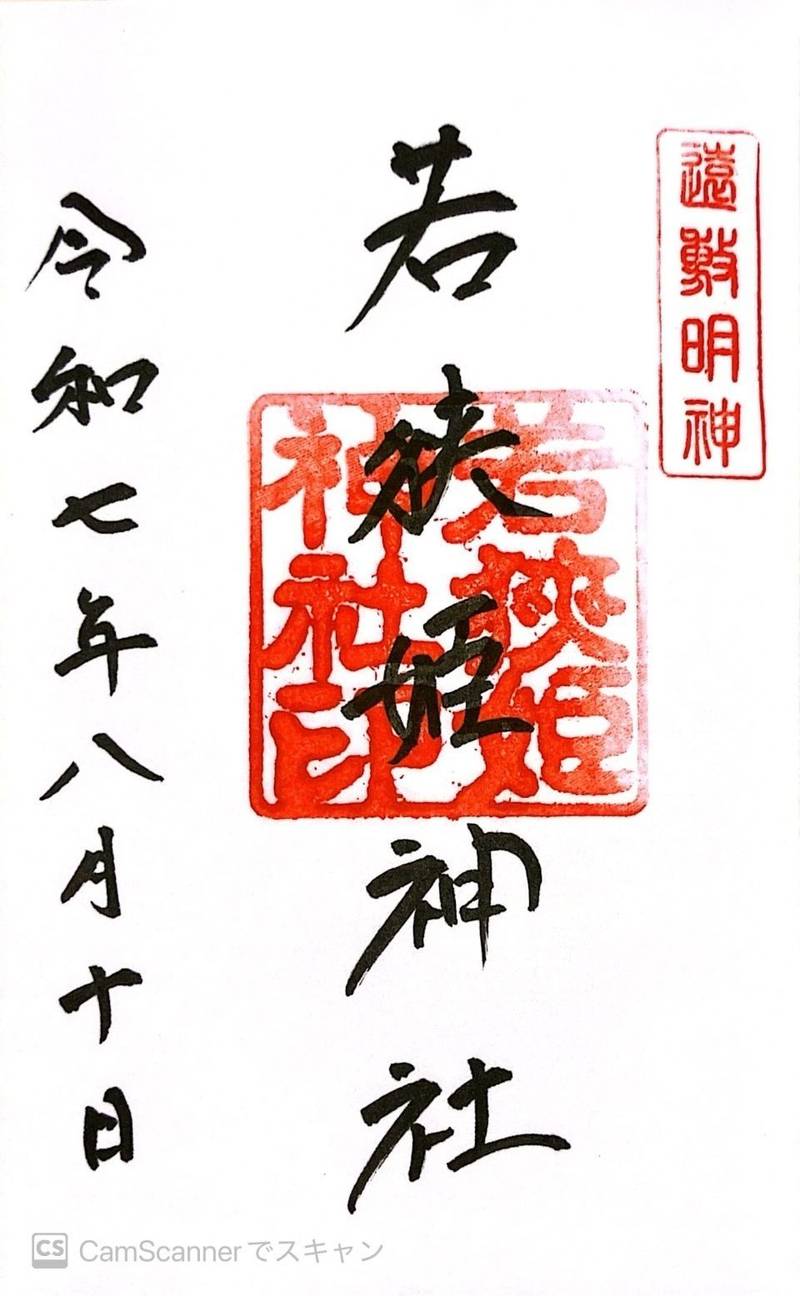 遠敷明神
若狭姫神社
若狭姫
神社印
令和七年八月十日
CS CamScannerでスキャン